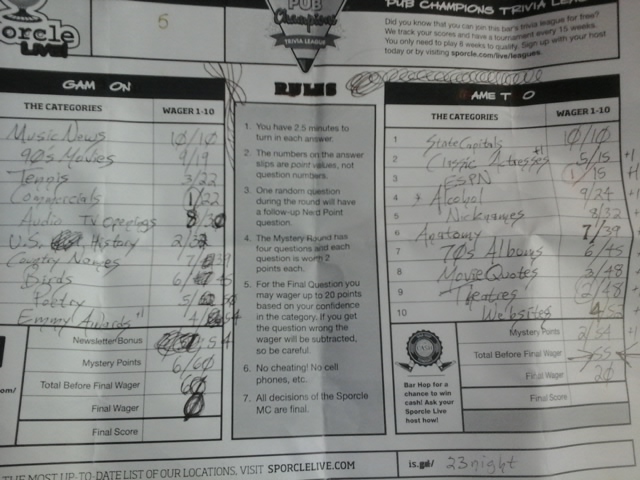 PUB
Champions
TRIVIA LEAGUE
PUB CHAMPIONS TRIVIA LEA
Did you know that you can join this bar's trivia league for free?
We track your scores and have a tournament every 15 weeks.
You only need to play 8 weeks to qualify. Sign up with your host
today or by visiting sporcle.com/live/leagues.
orcle
LIVE!
5
GAM ON
THE CATEGORIES
WAGER 1-10
Music News 10/10
90's Movies 9/19
Tennis 3/22
Commercials 1/22
Audio Tv openings
U.S. History
Country Names
Birds
Poetry
Emmy Awards +1
Newsletter Bonus
Mystery Points 6/60
Total Before Final Wager
Final Wager
Final Score
RULES
1. You have 2.5 minutes to
turn in each answer.
2. The numbers on the answer
slips are point values, not
question numbers.
3. One random question
during the round will have
a follow-up Nerd Point
question.
4. The Mystery Round has
four questions and each
question is worth 2
points each.
5. For the Final Question you
may wager up to 20 points
based on your confidence
in the category. If you get
the question wrong the
wager will be subtracted,
so be careful.
6. No cheating! No cell
phones, etc..
7. All decisions of the Sporcle
MC are final.
AME T O
THE CATEGORIES
WAGER 1-10
1 State Capitals 10/10
2 Classic Actresses +1 5/15
3 ESPN 1/15
4 Alcohol 9/24
5 Nicknames 8/32
6 Anatomy 7/39
7 70's Albums 6/45
8 Movie Quotes 3/48
9 Theatres 2/48
10 Websites
Mystery Points 2/54
Total Before Final Wager
Final Wager 20
Final Score
Bar Hop for a
chance to win
cash! Ask your
Sporcle Live
host how!
THE MOST UP-TO-DATE LIST OF OUR LOCATIONS, VISIT SPORCLELIVE.COM
is.gd/ 23night